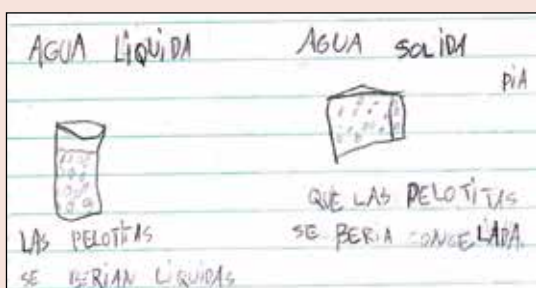 AGUA LÍQUIDA
LAS PELOTITAS
SE BERIAN LIQUIDAS
AGUA SOLIDA
DIA
QUE LAS PELOTITAS
SE BERIA CONGELADA.